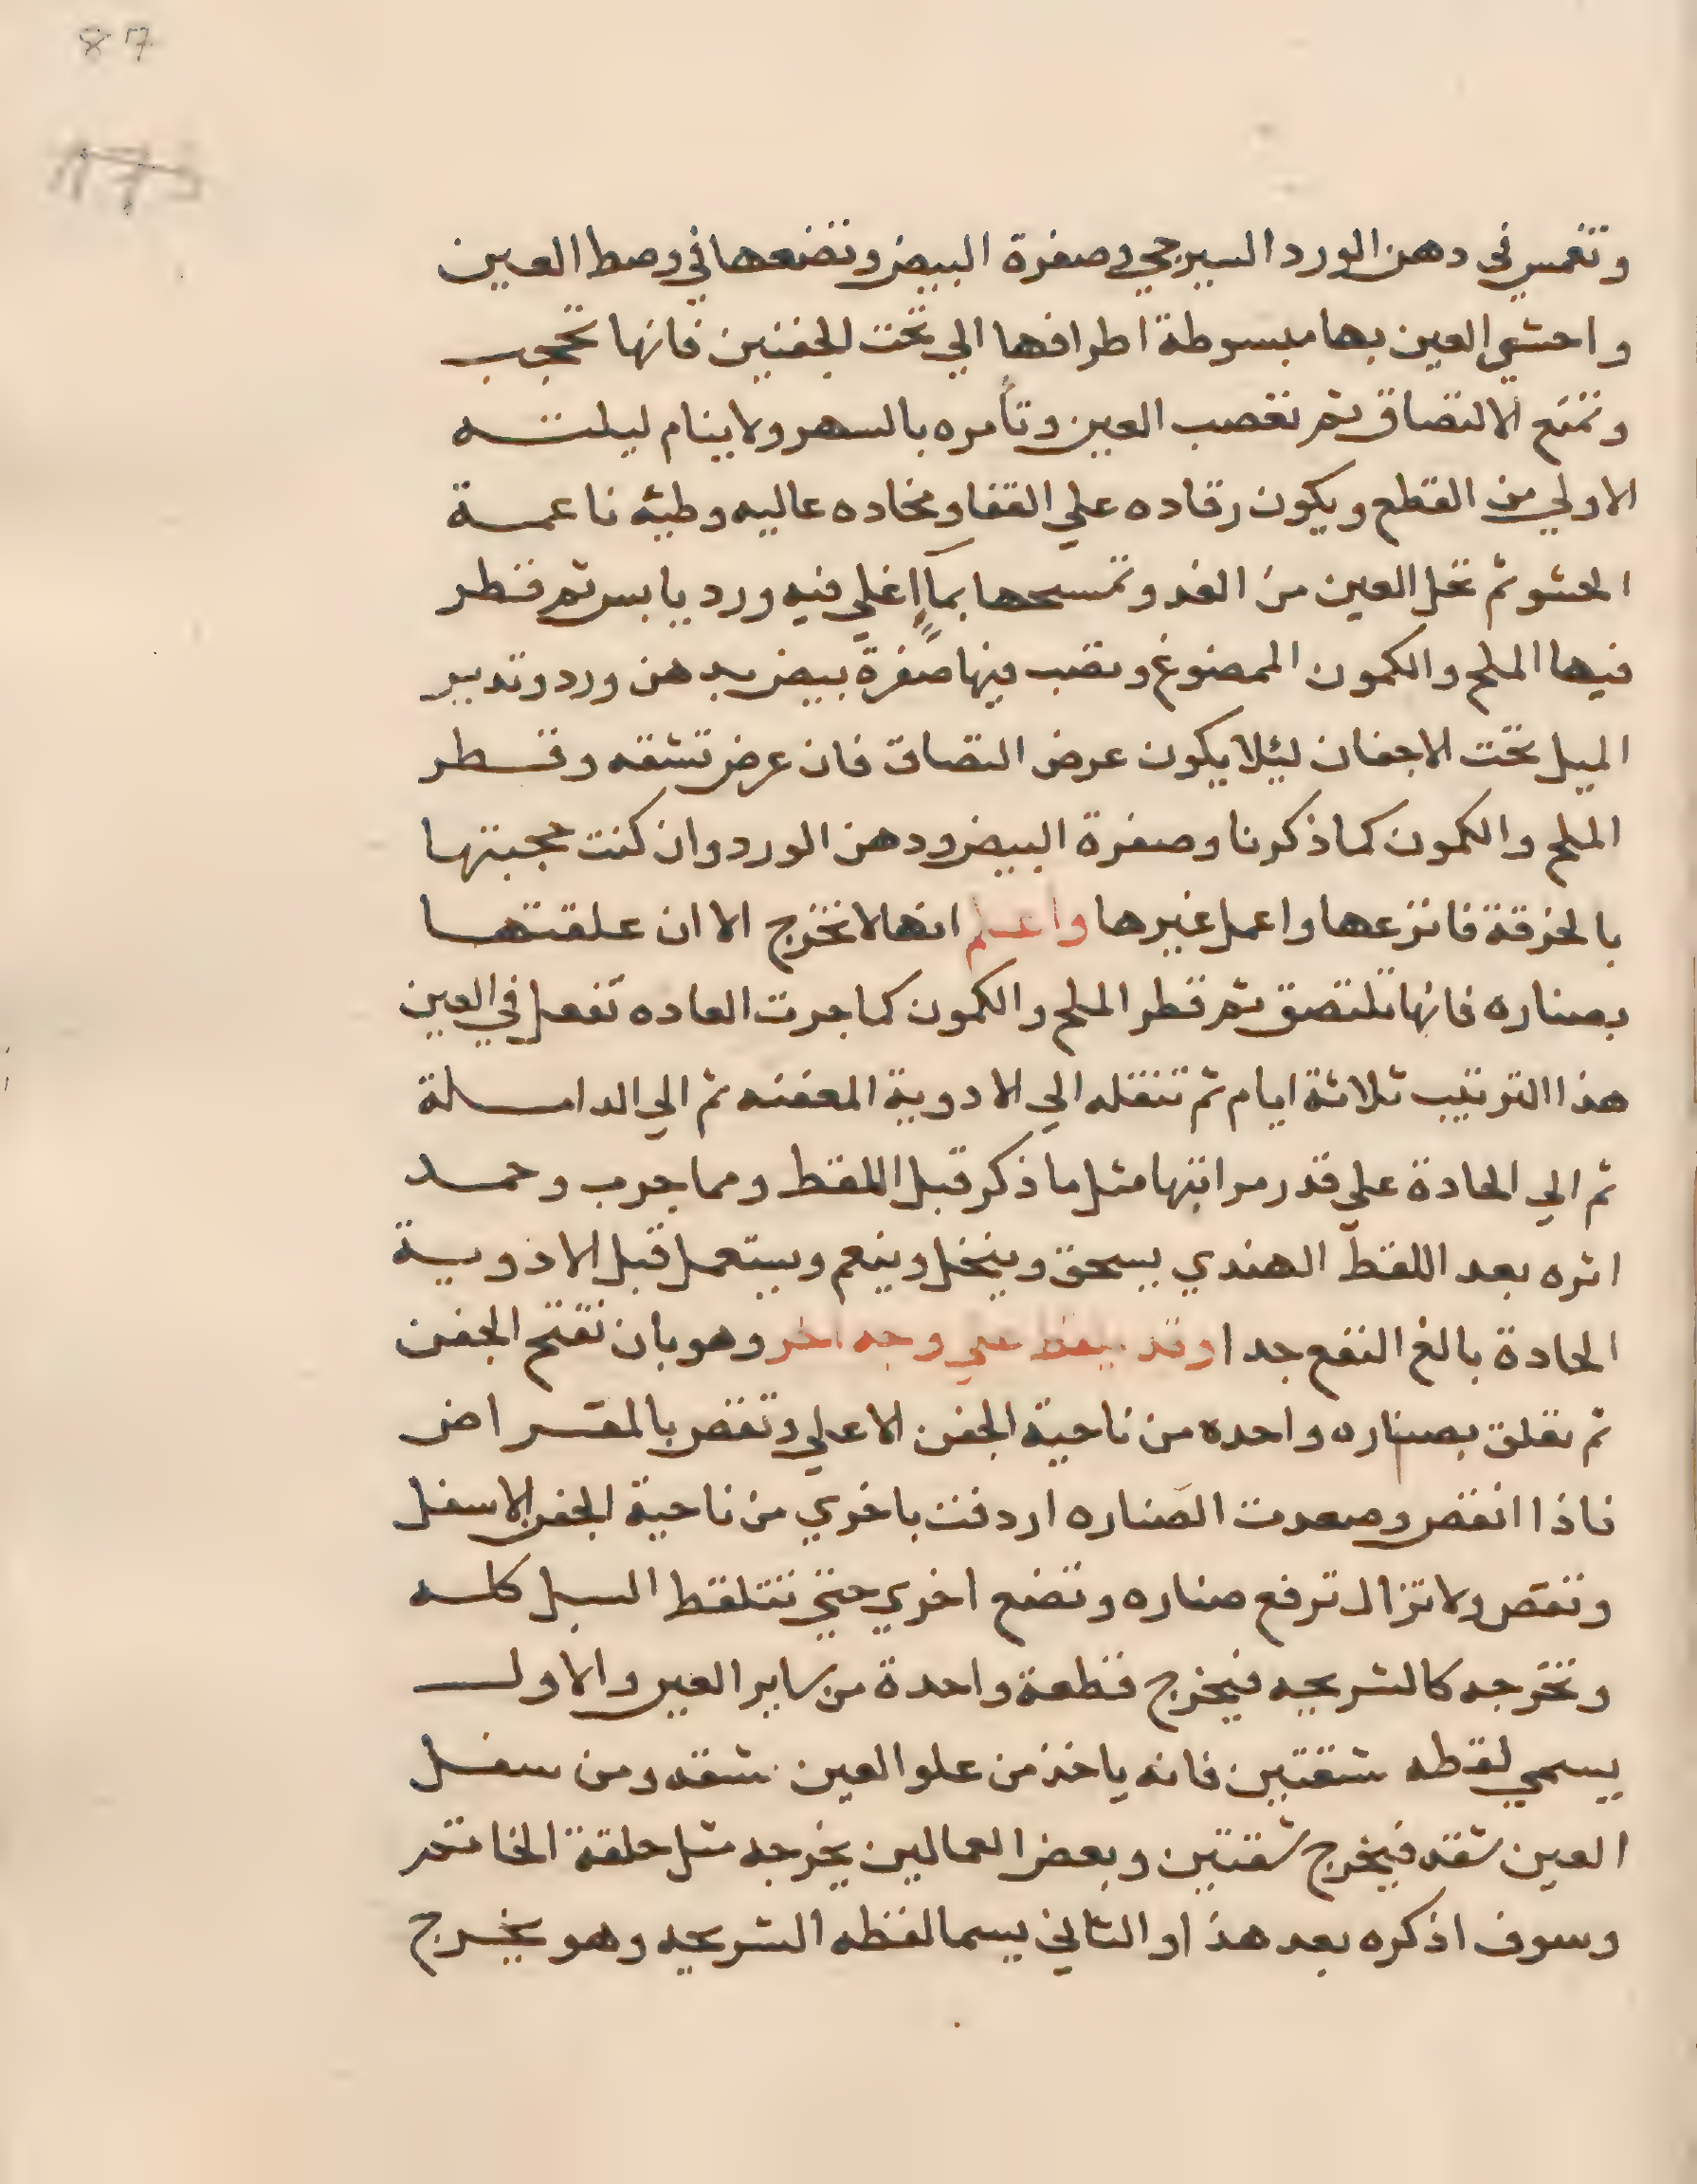 87
وتغمس في دهن الورد السيرجي وصفرة البيض وتضعها في وصط العين
واحشي العين بها مبسوطة اطرافها الي تحت الجفنين فانها تحجب
وتمنع الالتصاق ثم تعصب العين وتأمره بالسهر ولا ينام ليلته
الاولي من القطع ويكون رقاده علي القفا ومخاده عاليه وطيه ناعمة
الحشو ثم تحل العين من الغد وتمسحها بمآ اغلي فيه ورد يابس ثم قطر
فيها الملح والكمون الممضوغ وتصب فيها صفرة بيض بدهن ورد وتدير
الميل تحت الاجفان ليلا يكون عرض التصاق فان عرض تشقه وقطر
الملح والكمون كما ذكرنا وصفرة البيض ودهن الورد وان كنت حجبتها
بالخرقة فانزعها واعمل غيرها واعلم انها لا تخرج الا ان علقتها
بصناره فانها تلتصق ثم قطر الملح والكمون كما جرت العاده تفعل في العين
هذا الترتيب ثلاثة ايام ثم تنقله الي الادوية المعفنه ثم الي الداملة
ثم الي الحادة علي قدر مراتبها مثل ما ذكر قبل اللقط ومما جرب وحمد
اثره بعد اللقط الهندي يسحق وينخل وينعم ويستعمل قبل الادوية
الحادة بالغ النفع جدا وقد يلقط علي وجه اخر وهو بان تفتح الجفن
ثم تعلق بصناره واحده من ناحية الجفن الاعلي وتقص بالمقراض
فاذا انقص وصعدت الصناره اردفت باخري من ناحية الجفن الاسفل
وتقص ولا تزال ترفع صناره وتضع اخري حتي تتلقط السبل كله
وتخرجه كالشريجه فيخرج قطعة واحدة من ساير العين والاول
يسمي لقطه شقتين فانه ياخذ من علو العين شقه ومن سفل
العين شقه فيخرج شقتين وبعض العمالين يخرجه مثل حلقة الخاتم
وسوف اذكره بعد هذا والثاني يسما لقطه الشريجه وهو يخرج